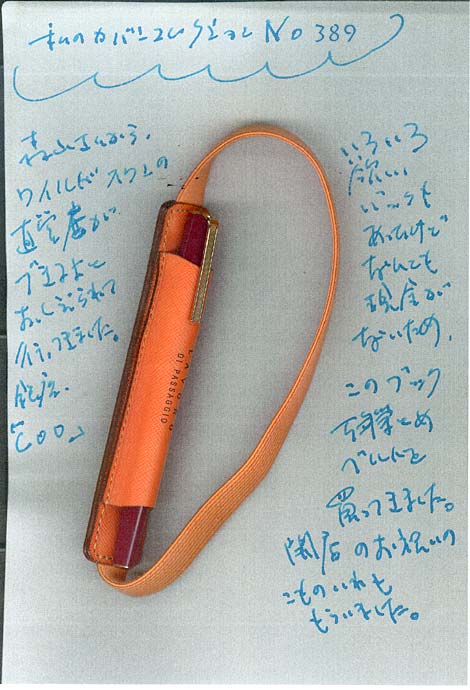 私のカバーコレクション No 389
森山さんから、
ワイルドスワンの
直営店が
できたよと
おしえられて
行ってきました。
銀座
いろいろ
欲しい
バッグも
あったけど
なんても
現金が
ないため、
このブック
万年筆とめ
ベルトを
買ってきました。
開店のお祝いの
こものいれも
もらいました。
DI PASSAGGIO